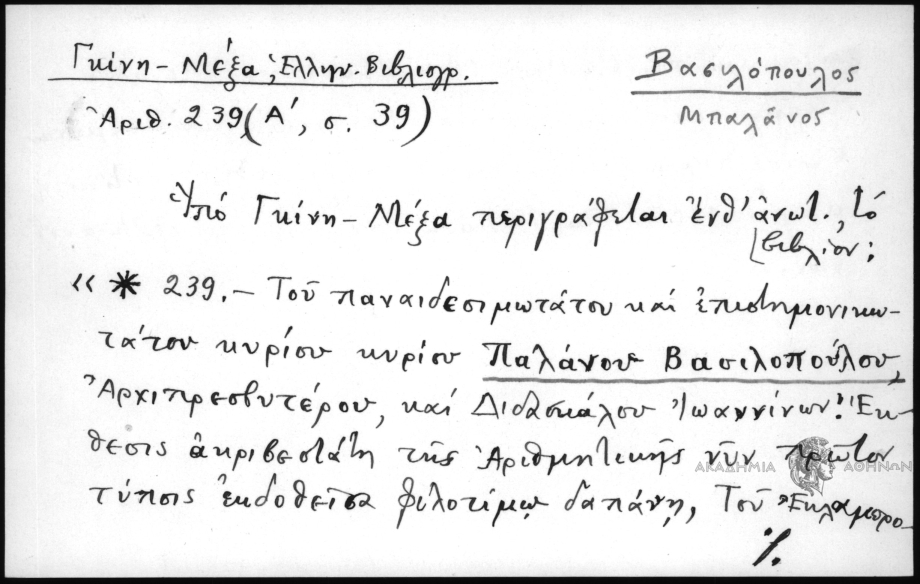 Γκίνη - Μέξα, Ἑλλην. Βιβλιογρ.
Ἀριθ. 239 (Α', σ. 39)
Βασιλόπουλος
Μπαλᾶνος
Ὑπό Γκίνη - Μέξα περιγράφεται ἔνθ' ἀνωτ., τό
βιβλίον:
« * 239. - Τοῦ παναιδεσιμωτάτου καί ἐπιστημονικω-
τάτου κυρίου κυρίου Παλάνου Βασιλοπούλου,
Ἀρχιπρεσβυτέρου, καί Διδασκάλου Ἰωαννίνων! Ἔκ-
θεσις ἀκριβεστάτη τῆς Ἀριθμητικῆς νῦν πρῶτον
τύποις ἐκδοθεῖσα φιλοτίμῳ δαπάνῃ, Τοῦ Ἐκλαμπρο-
./.
ΑΚΑΔΗΜΙΑ ΑΘΗΝΩΝ